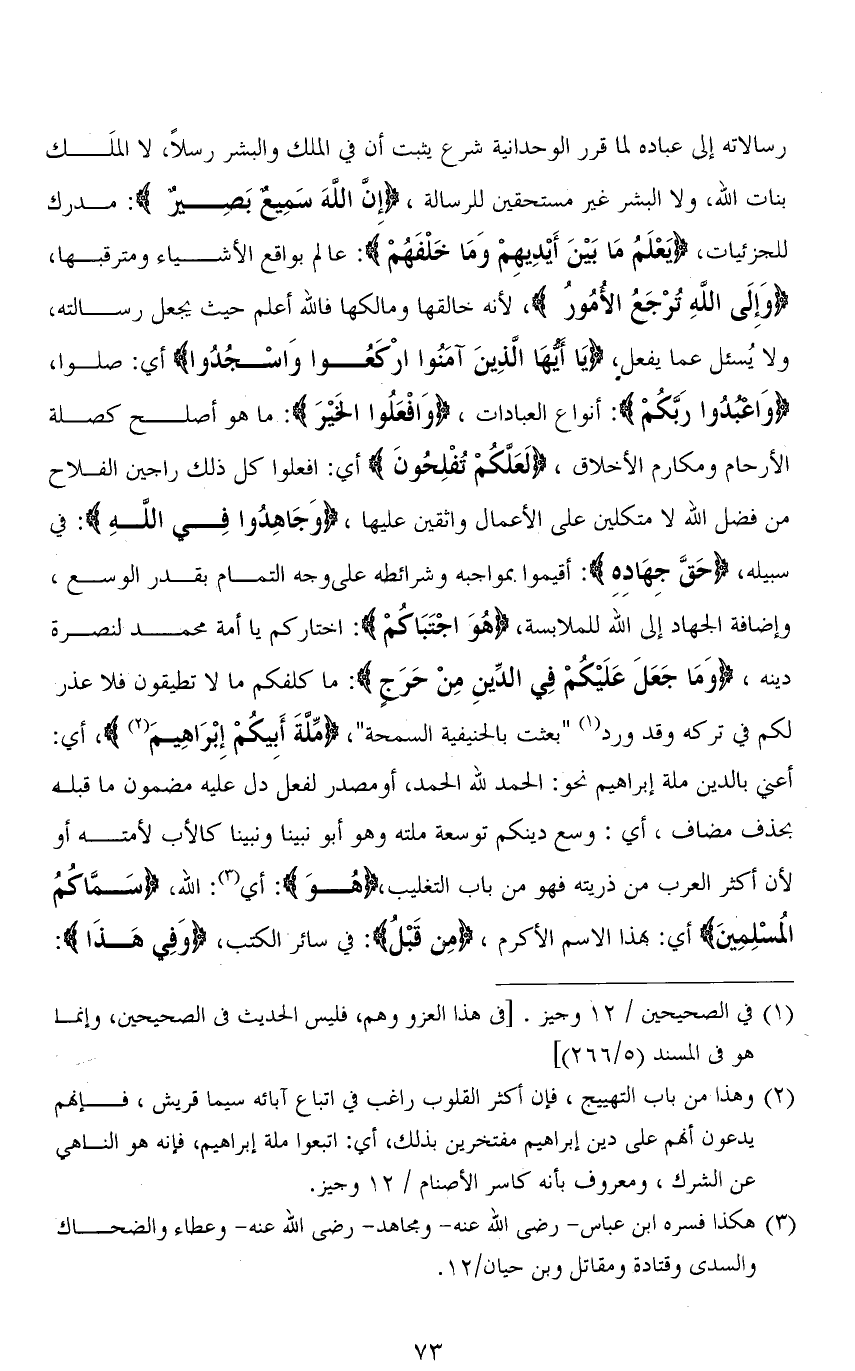 رسالاته إلى عباده لما قرر الوحدانية شرع يثبت أن في الملك والبشر رسلاً، لا الملَك
بنات الله، ولا البشر غير مستحقين للرسالة ، ﴿إِنَّ اللَّهَ سَمِيعٌ بَصِيرٌ ﴾: مدرك
للجزئيات، ﴿يَعْلَمُ مَا بَيْنَ أَيْدِيهِمْ وَمَا خَلْفَهُمْ ﴾: عالم بواقع الأشياء ومترقبها،
﴿وَإِلَى اللَّهِ تُرْجَعُ الأُمُورُ ﴾، لأنه خالقها ومالكها فالله أعلم حيث يجعل رسالته،
ولا يُسئل عما يفعل، ﴿يَا أَيُّهَا الَّذِينَ آمَنُوا ارْكَعُوا وَاسْجُدُوا﴾ أي: صلوا،
﴿وَاعْبُدُوا رَبَّكُمْ ﴾: أنواع العبادات ، ﴿وَافْعَلُوا الخَيْرَ ﴾: ما هو أصلح كصلة
الأرحام ومكارم الأخلاق ، ﴿لَعَلَّكُمْ تُفْلِحُونَ ﴾ أي: افعلوا كل ذلك راجين الفلاح
من فضل الله لا متكلين على الأعمال واثقين عليها ، ﴿وَجَاهِدُوا فِي اللَّهِ ﴾: في
سبيله، ﴿حَقَّ جِهَادِهِ ﴾: أقيموا بمواجبه وشرائطه على وجه التمام بقدر الوسع ،
وإضافة الجهاد إلى الله للملابسة، ﴿هُوَ اجْتَبَاكُمْ ﴾: اختاركم يا أمة محمد لنصرة
دينه ، ﴿وَمَا جَعَلَ عَلَيْكُمْ فِي الدِّينِ مِنْ حَرَجٍ ﴾: ما كلفكم ما لا تطيقون فلا عذر
لكم في تركه وقد ورد(١) "بعثت بالحنيفية السمحة"، ﴿مِّلَّةَ أَبِيكُمْ إِبْرَاهِيمَ(٢) ﴾، أي:
أعني بالدين ملة إبراهيم نحو: الحمد لله الحمد، أومصدر لفعل دل عليه مضمون ما قبله
بحذف مضاف ، أي : وسع دينكم توسعة ملته وهو أبو نبينا ونبينا كالأب لأمته أو
لأن أكثر العرب من ذريته فهو من باب التغليب،﴿هُوَ ﴾: أي(٣): الله، ﴿سَمَّاكُمُ
المُسْلِمِينَ﴾ أي: بهذا الاسم الأكرم ، ﴿مِن قَبْلُ﴾: في سائر الكتب، ﴿وَفِي هَذَا ﴾:
(١) في الصحيحين / ١٢ وجيز . [فى هذا العزو وهم، فليس الحديث فى الصحيحين، وإنما
هو فى المسند (٢٦٦/٥)]
(٢) وهذا من باب التهييج ، فإن أكثر القلوب راغب في اتباع آبائه سيما قريش ، فإنهم
يدعون أنهم على دين إبراهيم مفتخرين بذلك، أي: اتبعوا ملة إبراهيم، فإنه هو الناهي
عن الشرك ، ومعروف بأنه كاسر الأصنام / ١٢ وجيز.
(٣) هكذا فسره ابن عباس- رضى الله عنه- ومجاهد- رضى الله عنه- وعطاء والضحاك
والسدى وقتادة ومقاتل وبن حيان/١٢.
٧٣